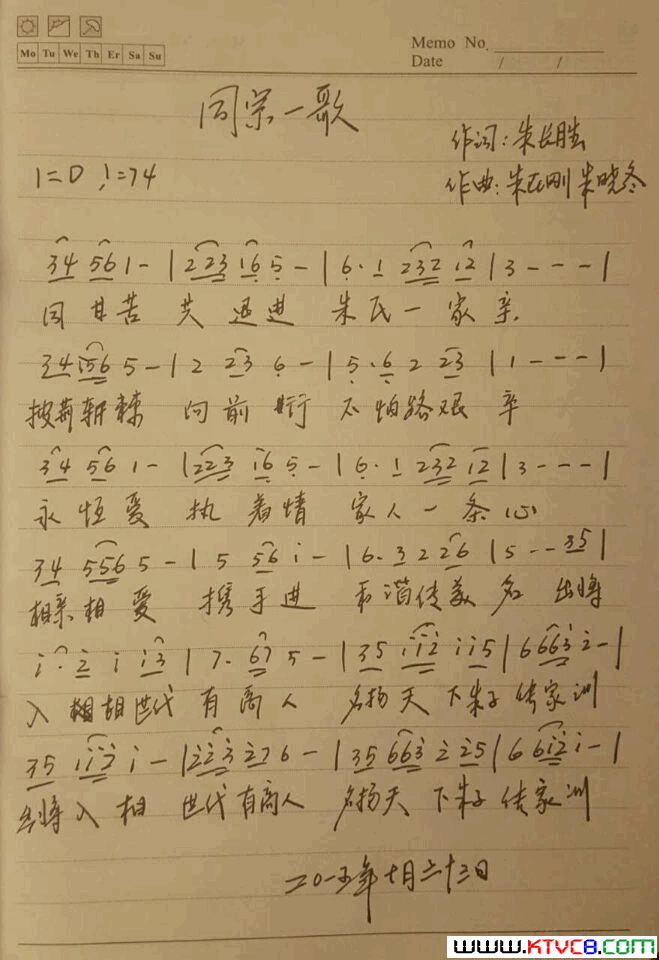 Mo Tu We Th Fr Sa Su
Memo No.
Date / /
同宗一歌
作词:朱长胜
1=D ♩=74
作曲:朱氏刚 朱晓冬
34 561 - | 2 223 16 5 - | 6· 1 232 12 | 3 - - - |
同甘苦 共 迅进 朱氏一家亲
34 1556 5 - | 2 23 6 - | 5· 6 2 23 | 1 - - - |
披荆斩棘 向前行 不怕路艰辛
34 56 1 - | 2 223 16 5 - | 6· 1 232 12 | 3 - - - |
永恒爱 执着情 家人一条心
34 556 5 - | 5 56 i - | 6· 3 2 26 | 5 - - 35 |
相亲相爱 携手进 和谐传美名 出将
i· 2 i i3 | 7· 67 5 - | 35 ii2 ii5 | 6 663 2 - |
入相 世代有高人 名扬天下朱子传家训
35 1i2 i - | 2 23 276 - | 35 663 2 25 | 6 6i2 i - |
出将入相 世代有高人 名扬天下朱子传家训
二〇一五年七月二十三日
www.KTVC8.com